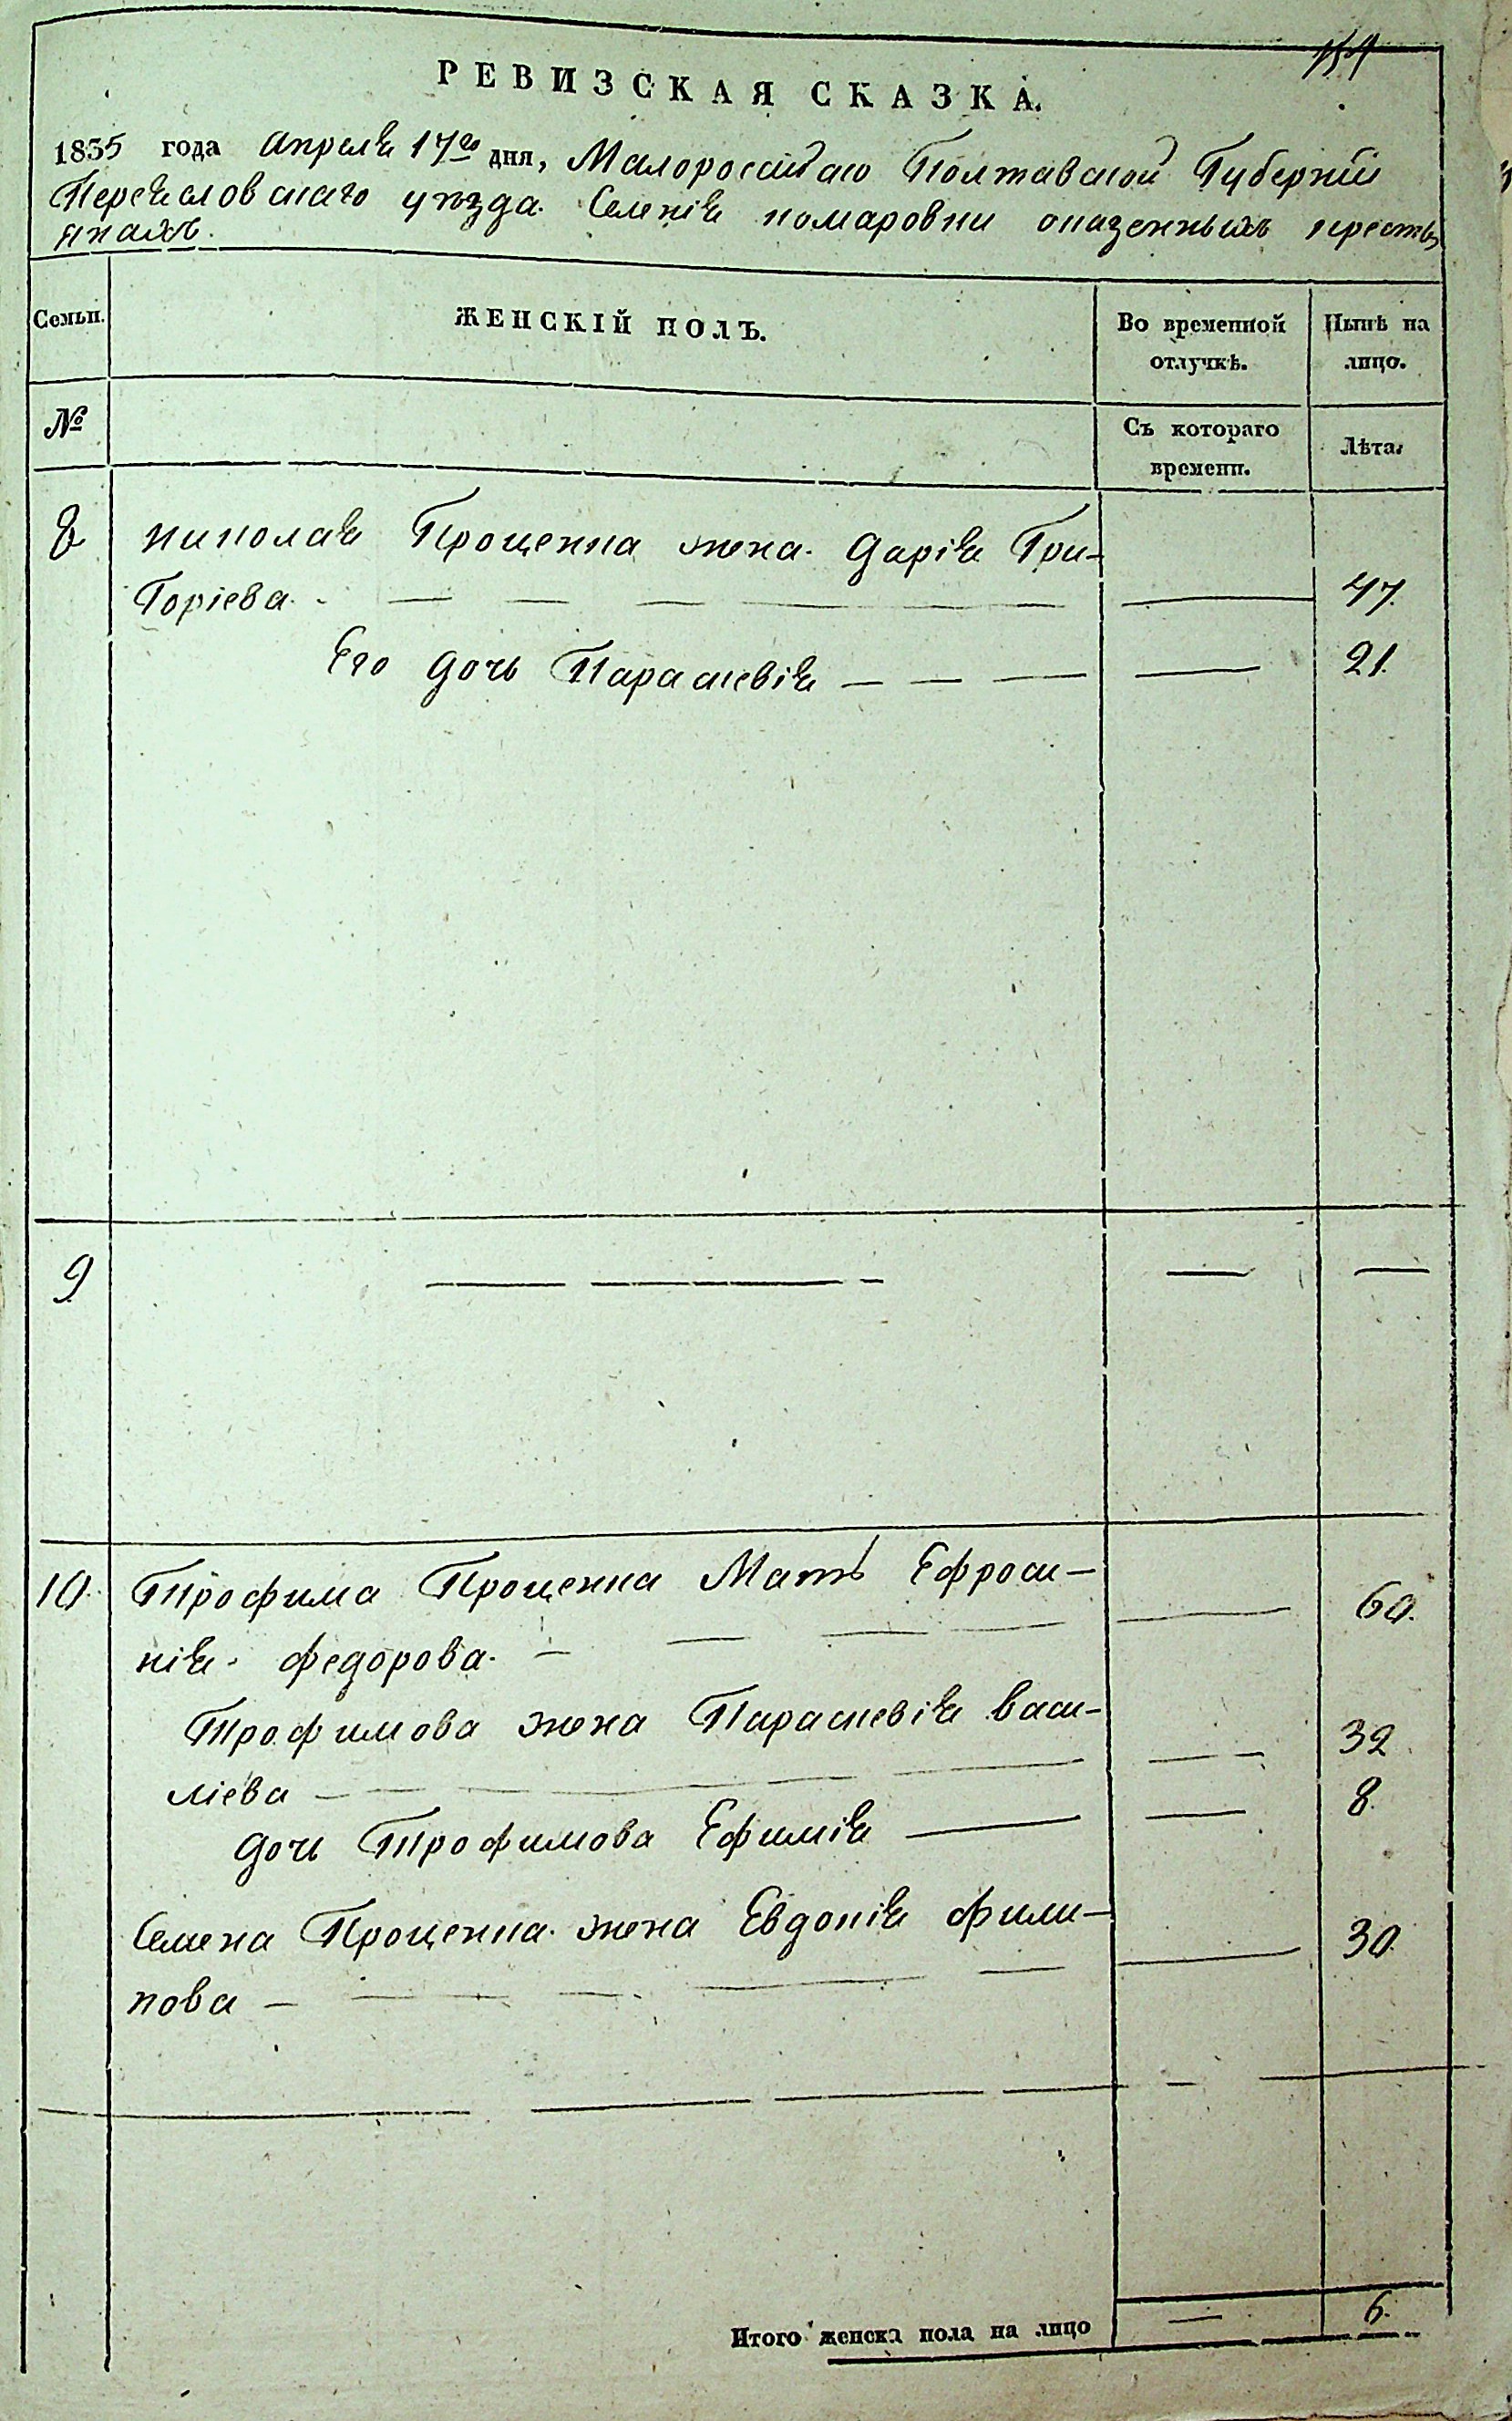 РЕВИЗСКАЯ СКАЗКА.
1835 года Апреля 17го дня, Малоросійскаю Полтавской Губерніи
Переяславскаго уезда. Селенія комаровки оказенныхъ кресть
янахъ.
Семьи. ЖЕНСКІЙ ПОЛЪ. Во временной отлучкѣ. Нынѣ на лицо.
№ Съ котораго времени. Лѣта.
8 николая Проценка жена. Дарія Гри-
Горіева. 47.
Его дочь Параскевія 21.
9
10. Трофима Проценка Мать Ефроси-
нія. федорова. 60.
Трофимова жена Параскевія васи-
ліева 32
дочь Трофимова Ефимія 8.
Семена Проценка. жена Евдокія фили-
пова 30.
Итого женска пола на лицо 6.